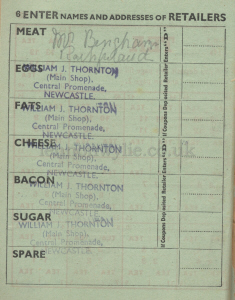 6 ENTER NAMES AND ADDRESSES OF RETAILERS
MEAT
Mr Bingham
EGGS
WILLIAM J. THORNTON
(Main Shop),
Central Promenade,
NEWCASTLE.
FATS
WILLIAM J. THORNTON
(Main Shop),
Central Promenade,
NEWCASTLE.
CHEESE
WILLIAM J. THORNTON
(Main Shop),
Central Promenade,
NEWCASTLE.
BACON
WILLIAM J. THORNTON
(Main Shop),
Central Promenade,
NEWCASTLE.
SUGAR
WILLIAM J. THORNTON
(Main Shop),
Central Promenade,
NEWCASTLE.
SPARE
If Coupons Deposited Retailer Enters "XX"
If Coupons Deposited Retailer Enters "XX"